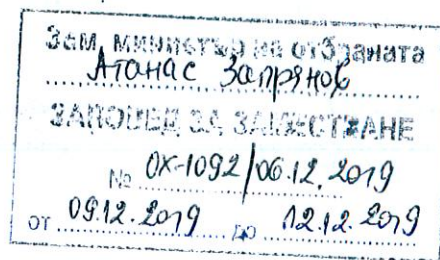 Зам. министър на отбраната
Атанас Запрянов
ЗАПОВЕД ЗА ЗАМЕСТВАНЕ
№ ОХ-1092/06.12.2019
от 09.12.2019 до 12.12.2019